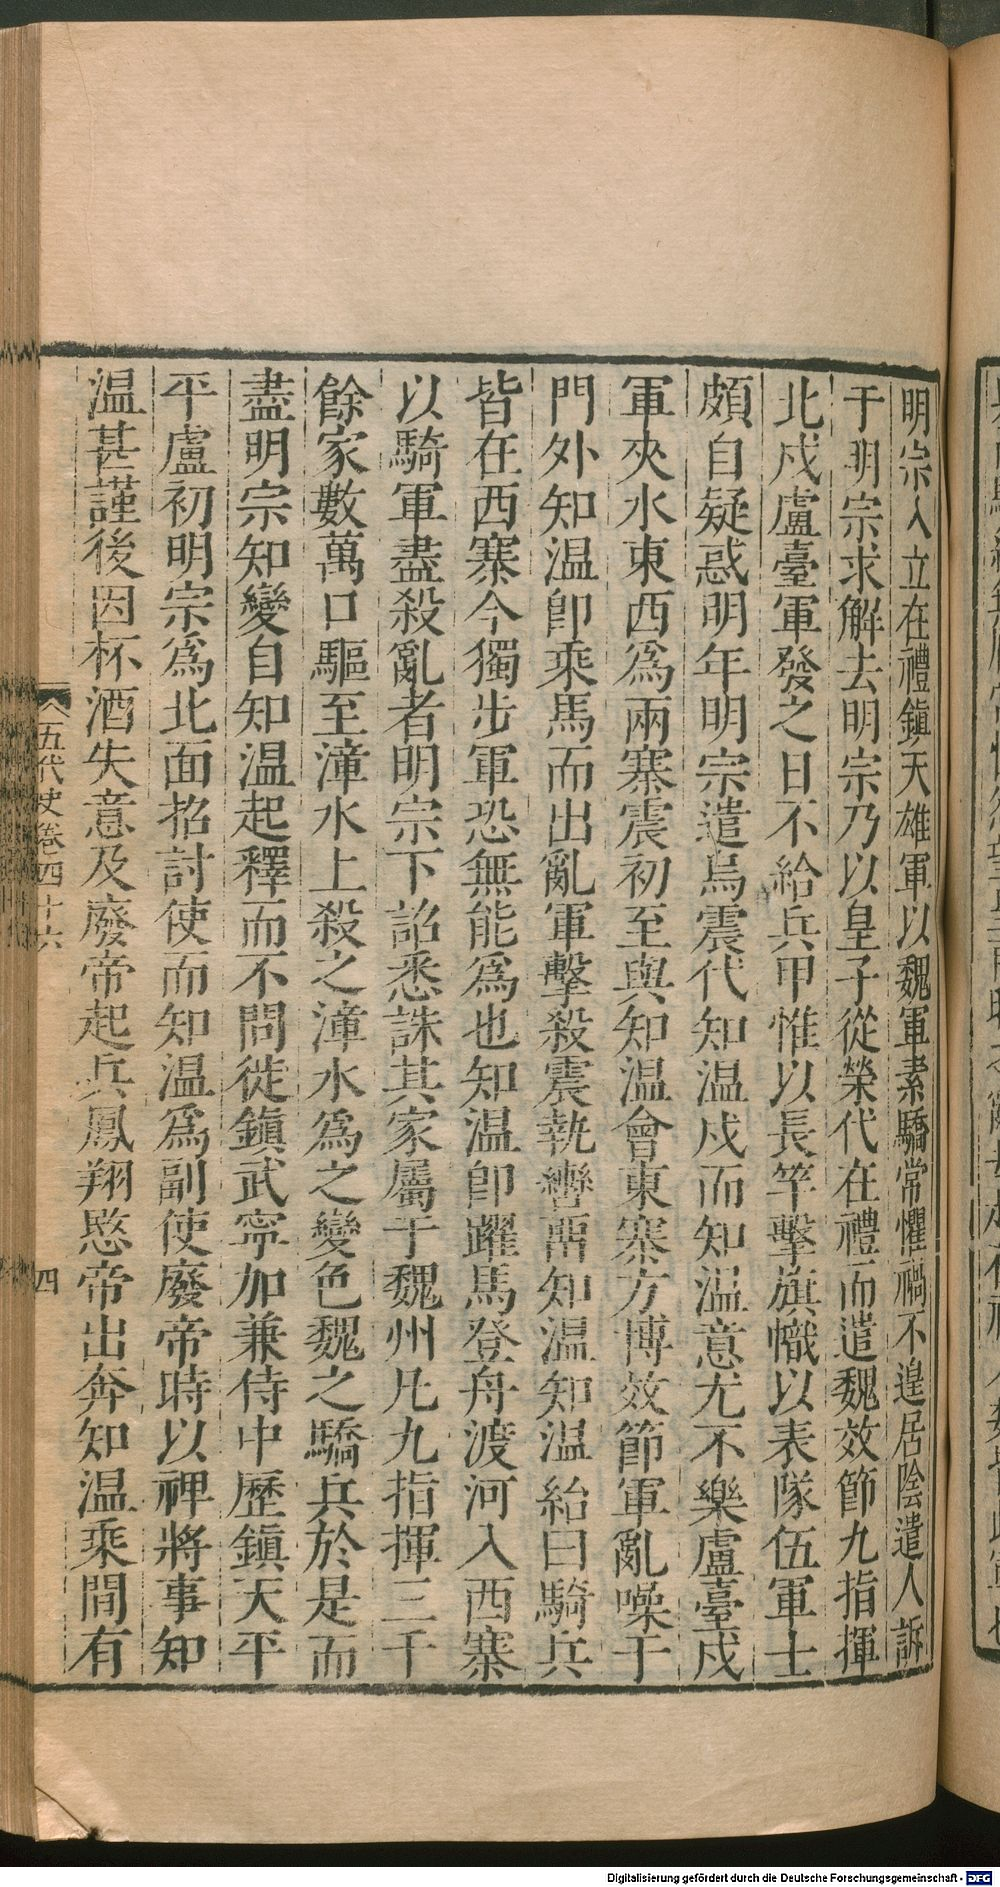 明宗入立在禮鎮天雄軍以魏軍素驕常懼禍不遑居陰遣人訴
于明宗求解去明宗乃以皇子從榮代在禮而遣魏效節九指揮
北戍盧臺軍發之日不給兵甲惟以長竿擊旗幟以表隊伍軍士
頗自疑惑明年明宗遣烏震代知温戍而知温意尤不樂盧臺戍
軍夾水東西爲兩寨震初至與知温會東寨方博效節軍亂噪于
門外知温卽乘馬而出亂軍擊殺震執轡留知温知温紿曰騎兵
皆在西寨今獨步軍恐無能爲也知温卽躍馬登舟渡河入西寨
以騎軍盡殺亂者明宗下詔悉誅其家屬于魏州凡九指揮三千
餘家數萬口驅至漳水上殺之漳水爲之變色魏之驕兵於是而
盡明宗知變自知温起釋而不問徙鎮武寧加兼侍中歷鎮天平
平盧初明宗爲北面招討使而知温爲副使廢帝時以裨將事知
温甚謹後因杯酒失意及廢帝起兵鳳翔愍帝出奔知温乘間有
五代史卷四十六
四
Digitalisierung gefördert durch die Deutsche Forschungsgemeinschaft - DFG